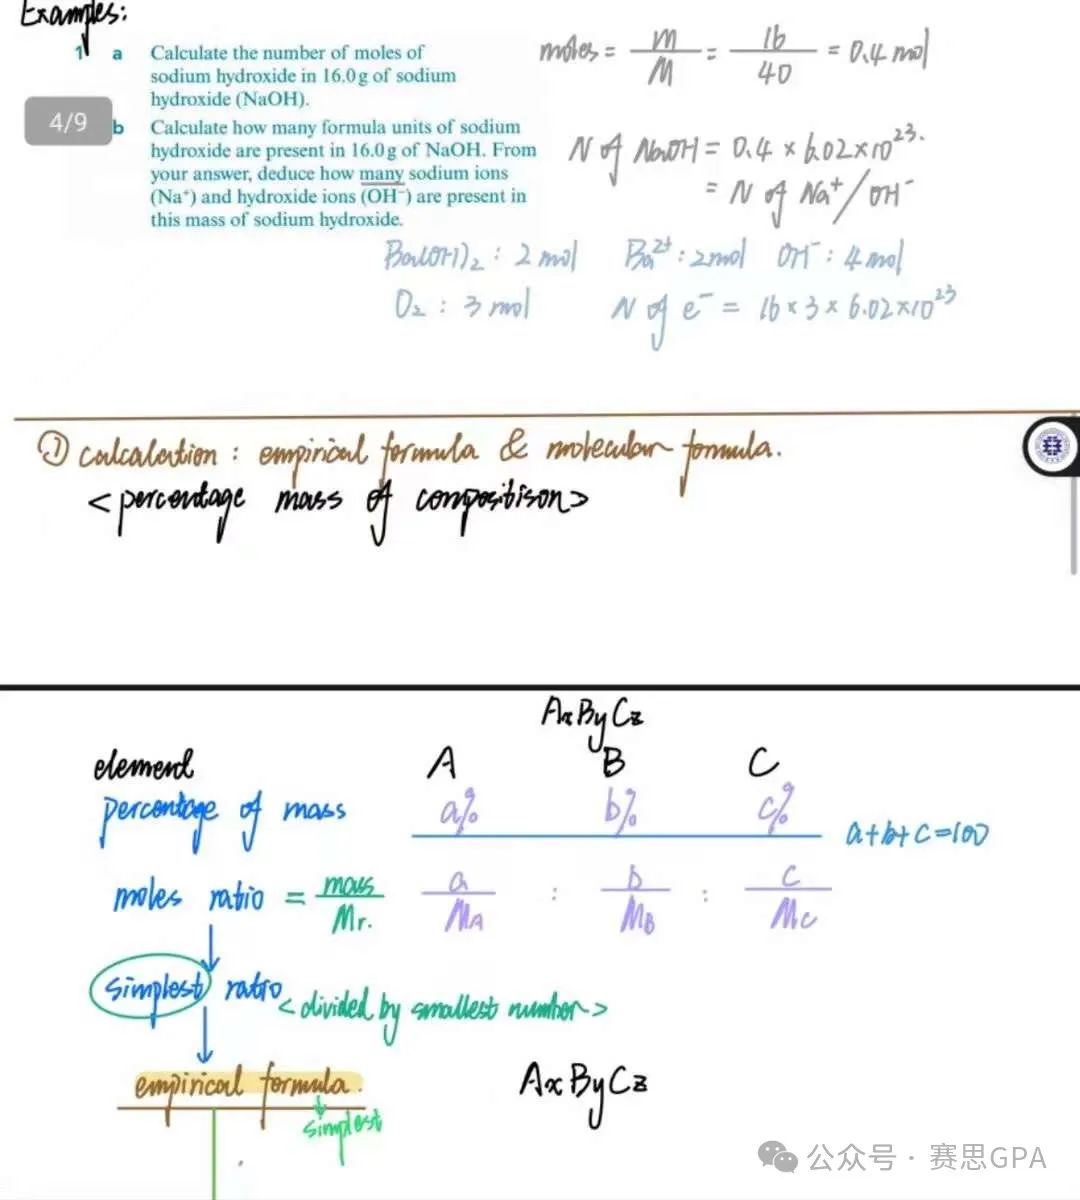 Examples:
1 a Calculate the number of moles of
sodium hydroxide in 16.0 g of sodium
hydroxide (NaOH).
moles = m/M = 16/40 = 0.4 mol
4/9
b Calculate how many formula units of sodium
hydroxide are present in 16.0 g of NaOH. From
your answer, deduce how many sodium ions
(Na⁺) and hydroxide ions (OH⁻) are present in
this mass of sodium hydroxide.
N of NaOH = 0.4 × 6.02×10²³.
= N of Na⁺/OH⁻
Ba(OH)₂ : 2 mol Ba²⁺ : 2mol OH⁻ : 4 mol
O₂ : 3 mol N of e⁻ = 16×3×6.02×10²³
① calcalation : empirical formula & molecular formula.
<percentage mass of compositison>
AxByCz
element A B C
percentage of mass a% b% c%
a+b+c=100
moles ratio = mass/Mr. a/MA : b/MB : c/MC
simplest ratio <divided by smallest number>
empirical formula. AxByCz
simplest
公众号 · 赛思GPA